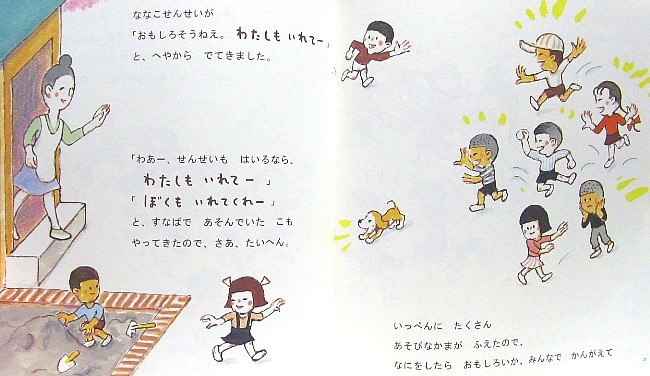 ななこせんせいが
「おもしろそうねえ。わたしも いれてー」
と、へやから でてきました。
「わあー、せんせいも はいるなら、
わたしも いれてー」
「ぼくも いれてくれー」
と、すなばで あそんでいた こも
やってきたので、さあ、たいへん。
いっぺんに たくさん
あそびなかまが ふえたので、
なにをしたら おもしろいか、みんなで かんがえて